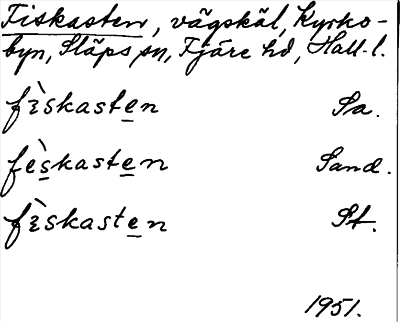 Fiskasten, vägskäl, Kyrko-
byn, Släps sn, Fjäre hd, Hall. l.
fìskasten Sa.
fèskasten Sand.
fìskasten St.
1951.